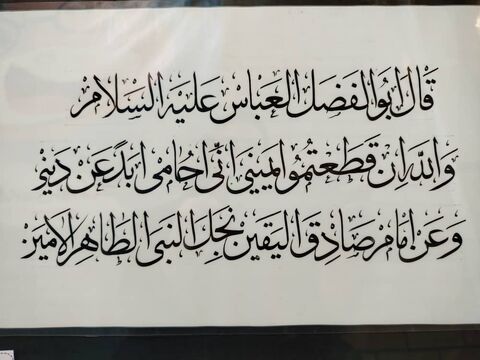 قال ابو الفضل العباس عليه السلام
والله ان قطعتموا يميني انّي احامي ابداً عن ديني
وعن امام صادق اليقين نجل النبي الطاهر الامين